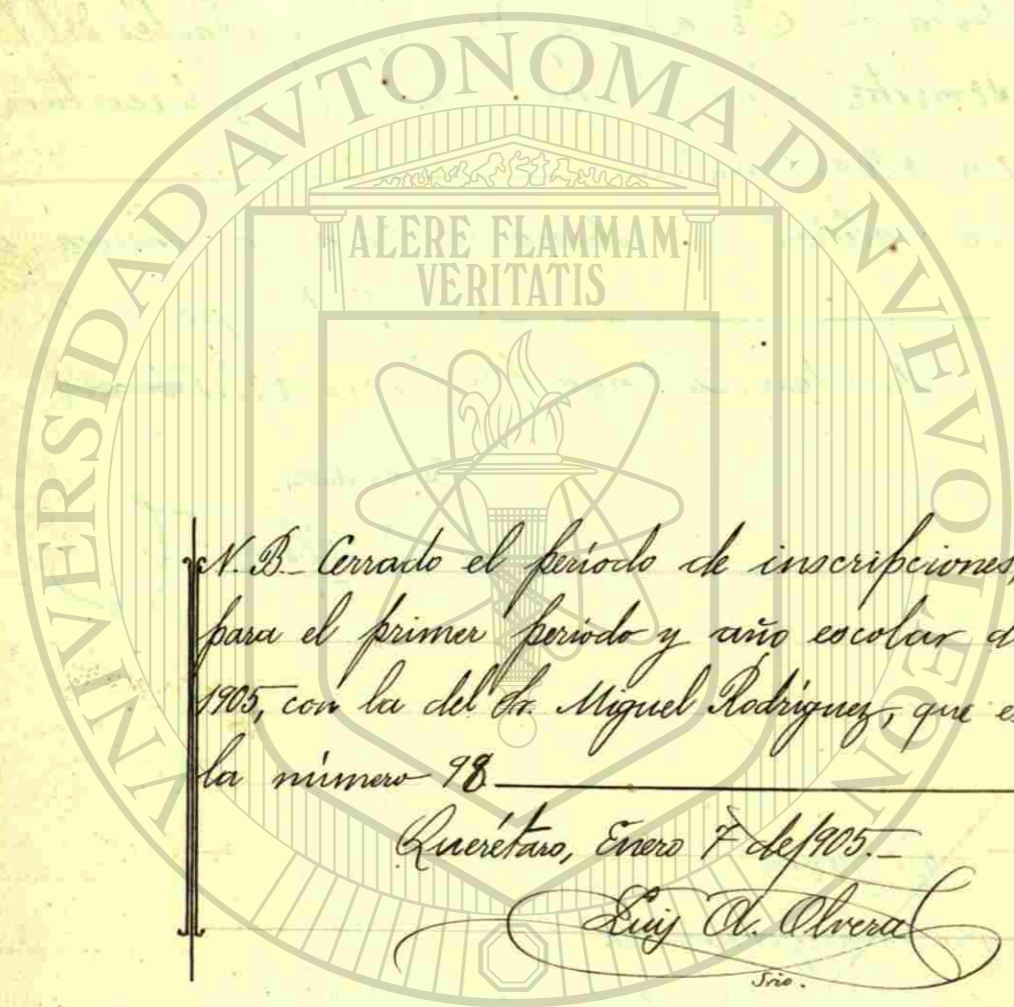 UNIVERSIDAD AVTONOMA D NVEVO LEON
ALERE FLAMMAM
VERITATIS
N. B. Cerrado el período de inscripciones,
para el primer período y año escolar d
1905, con la del Sr. Miguel Rodríguez, que e
la número 98
Querétaro, Enero 7 de 1905.
Luis A. Olvera
Srio.